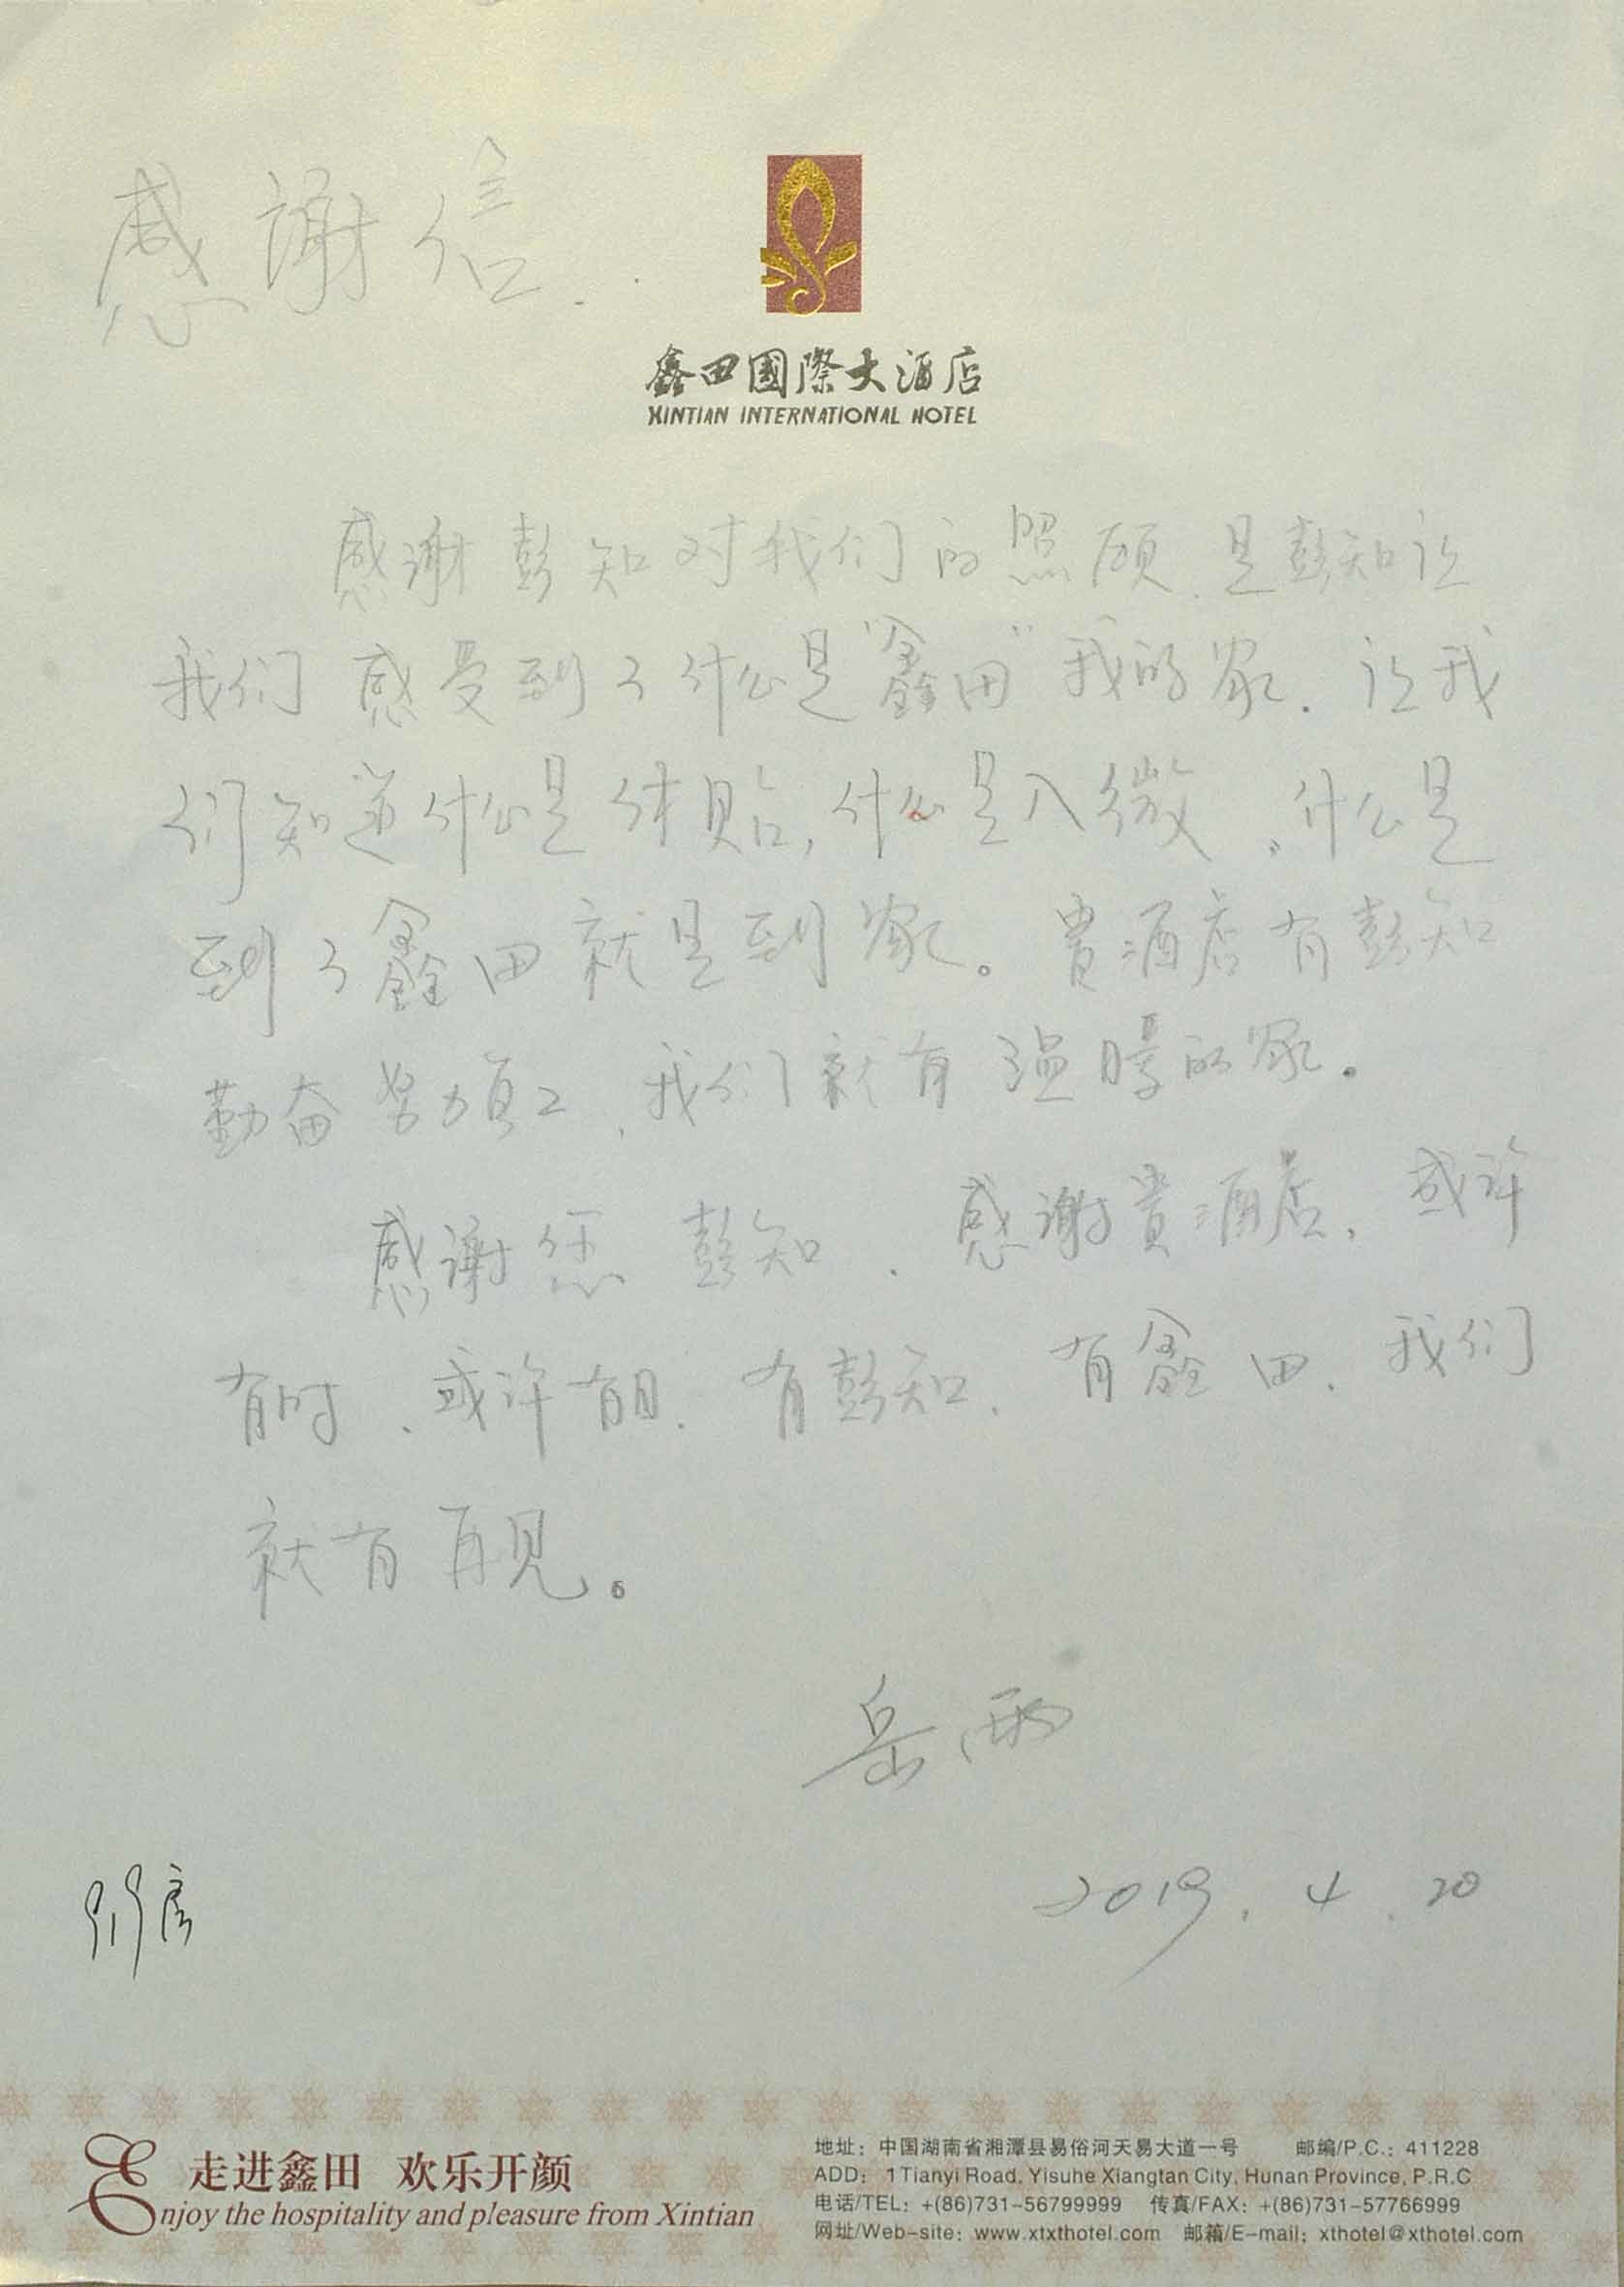 感谢信..
鑫田國際大酒店
XINTIAN INTERNATIONAL HOTEL
感谢彭知对我们的照顾.是彭知让
我们感受到了什么是“鑫田”我的家.让我
们知道什么是体贴,什么是入微、什么是
到了鑫田就是到家。贵酒店有彭知
勤奋努力员工,我们就有温暖的家。
感谢您彭知.感谢贵酒店,或许
有时、或许有日.有彭知.有鑫田.我们
就有再见。
岳雨
2019.4.20
走进鑫田 欢乐开颜
Enjoy the hospitality and pleasure from Xintian
地址：中国湖南省湘潭县易俗河天易大道一号 邮编/P.C.：411228
ADD：1 Tianyi Road, Yisuhe Xiangtan City, Hunan Province, P.R.C
电话/TEL：+(86)731-56799999 传真/FAX：+(86)731-57766999
网址/Web-site：www.xtxthotel.com 邮箱/E-mail：xthotel@xthotel.com